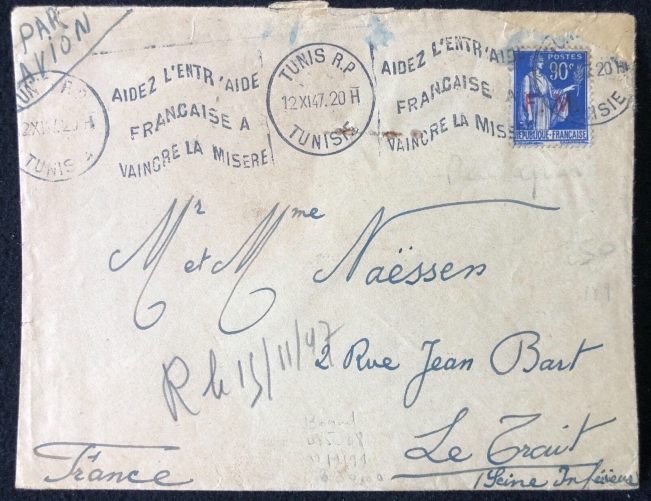 PAR
AVION
TUNIS R.P
12 XI 47. 20 H
TUNISIE
AIDEZ L'ENTR'AIDE
FRANCAISE A
VAINCRE LA MISERE
TUNIS R.P
12 XI 47. 20 H
TUNISIE
AIDEZ L'ENTR'AIDE
FRANCAISE A
VAINCRE LA MISE
POSTES
90c
F M
REPUBLIQUE-FRANCAISE
20 H
ISIE
Mr et Mme Naëssen
R le 15/11/47
2 Rue Jean Bart
Le Trait
(Seine Inférieure
France